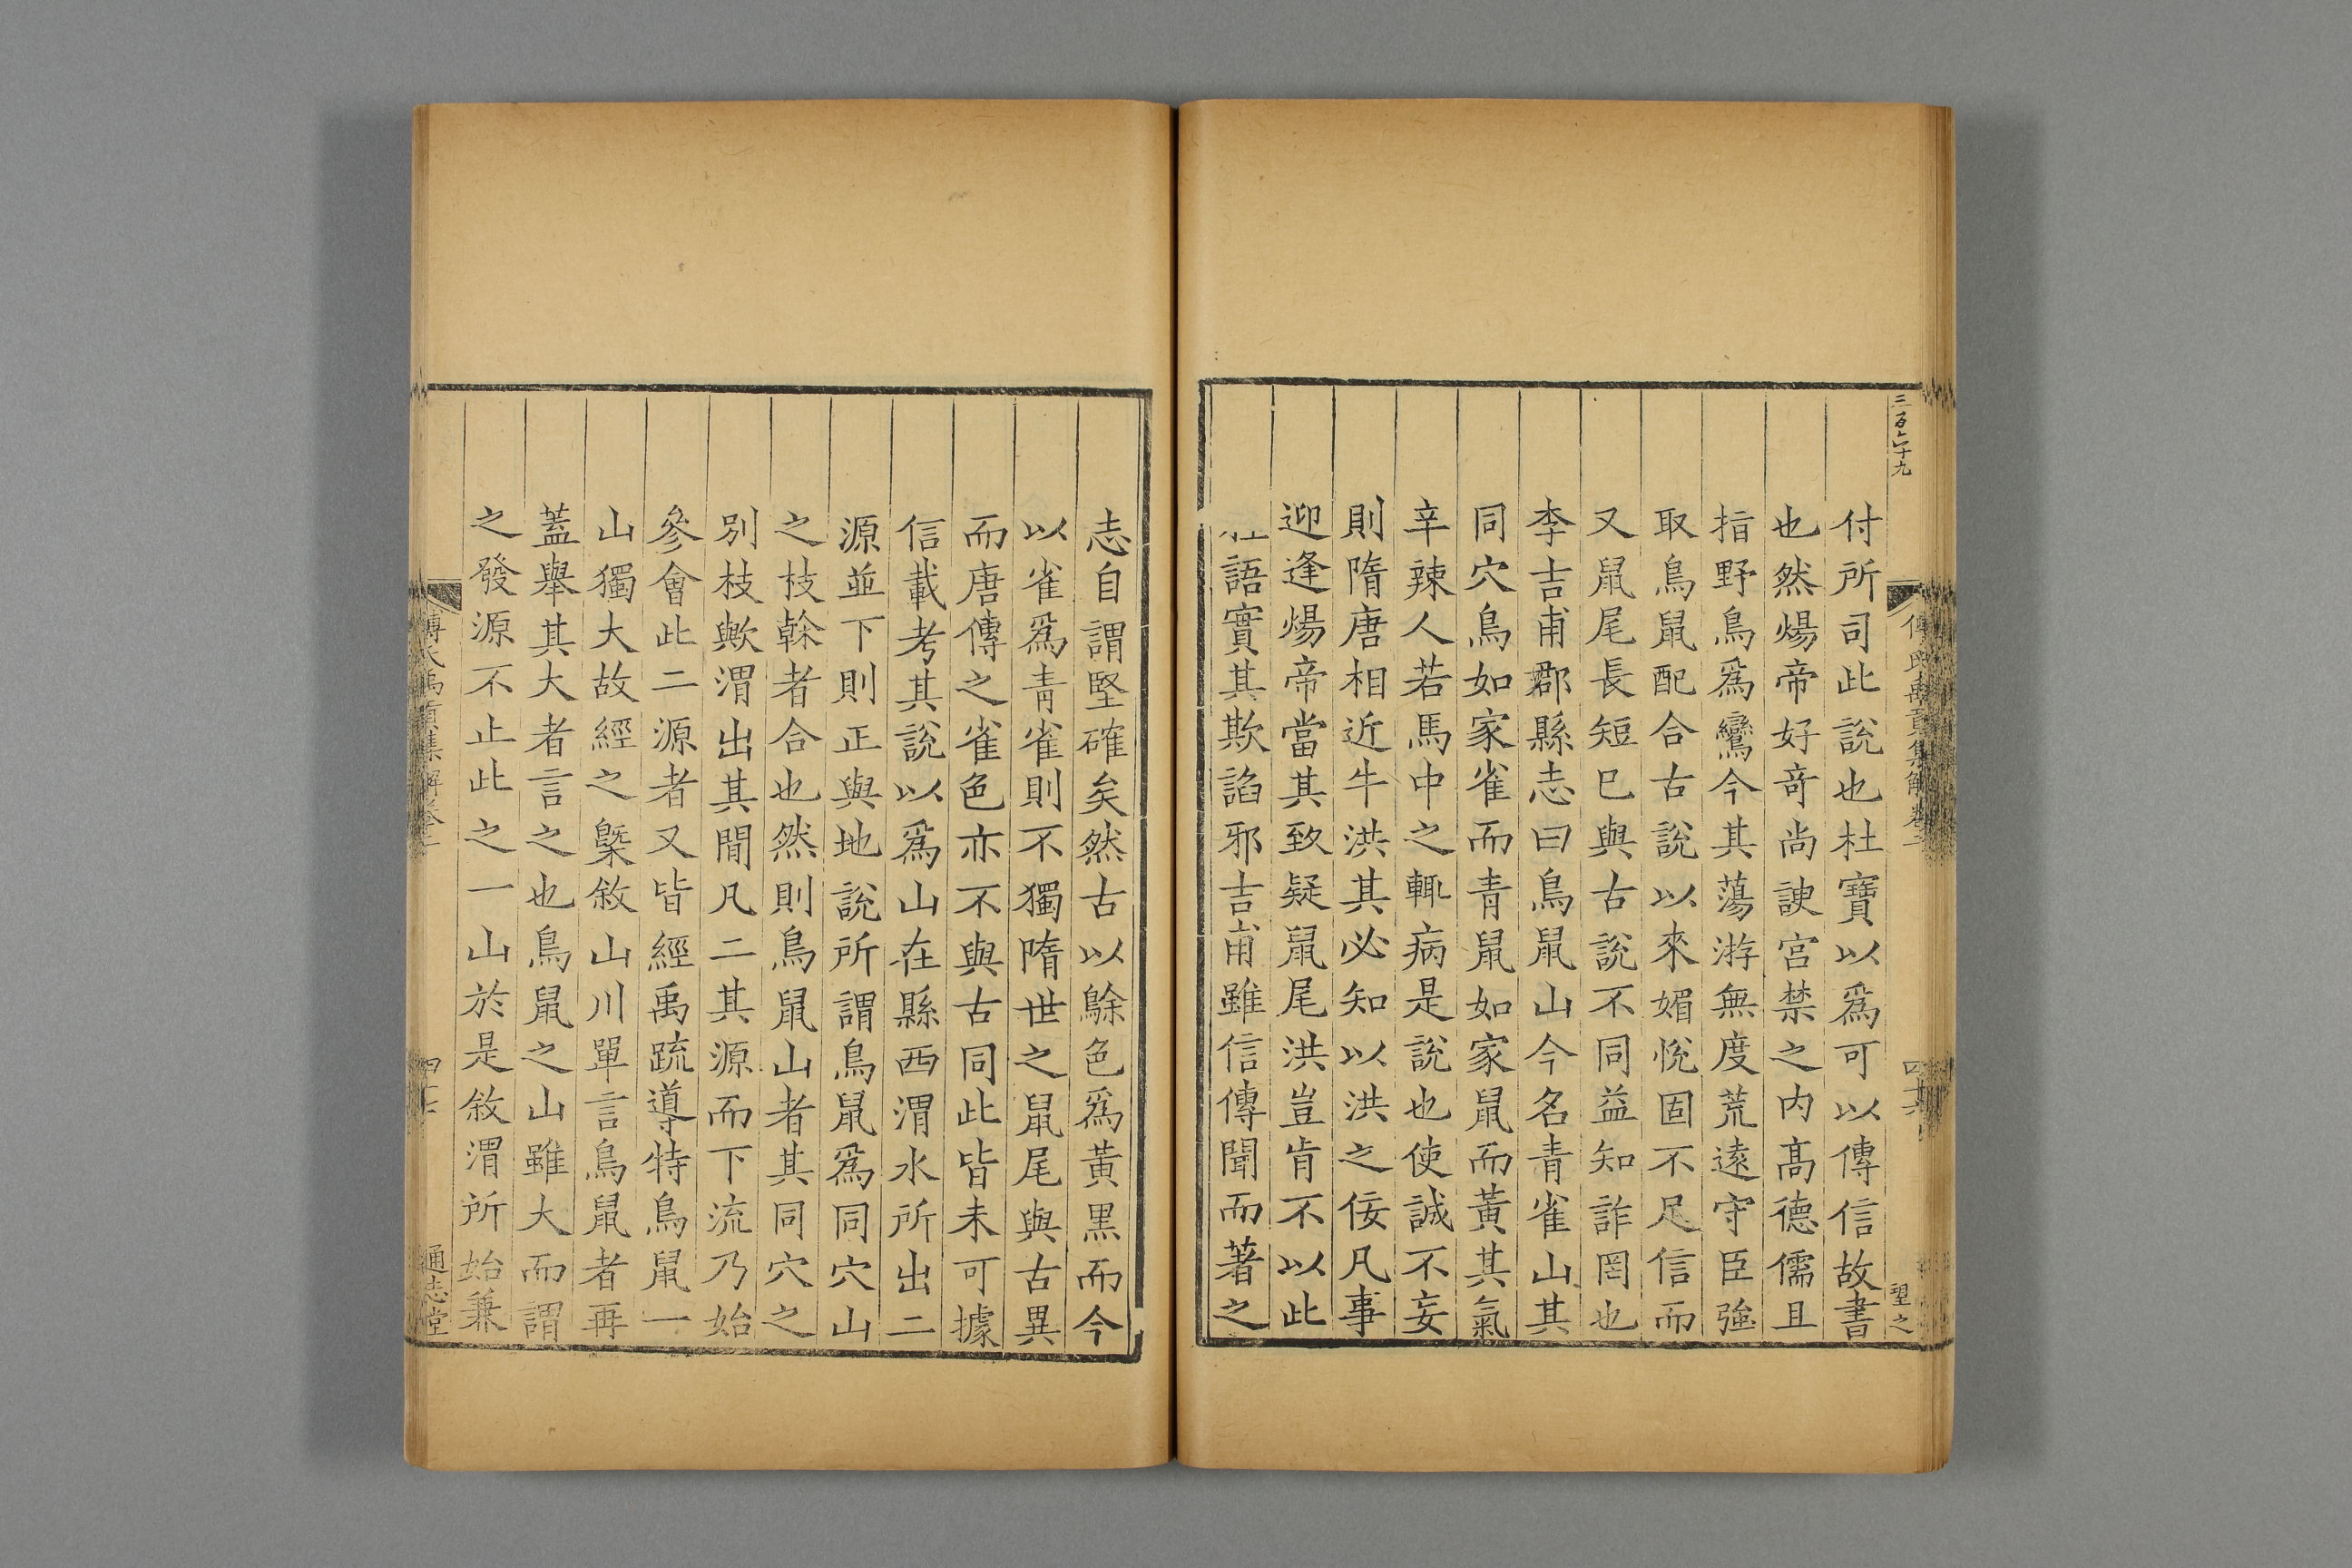 三百六十九
望之
付所司此說也杜寶以爲可以傳信故書
也然煬帝好竒尚諛宫禁之内髙德儒且
指野鳥爲鸞今其蕩游無度荒逺守臣強
取鳥鼠配合古說以來媚悅固不足信而
又鼠尾長短已與古說不同益知詐罔也
李吉甫郡縣志曰鳥鼠山今名青雀山其
同穴鳥如家雀而青鼠如家鼠而黃其氣
辛辣人若馬中之輒病是說也使誠不妄
則隋唐相近牛洪其必知以洪之佞凡事
迎逢煬帝當其致疑鼠尾洪豈肯不以此
語實其欺諂邪吉甫雖信傳聞而著之
志自謂堅確矣然古以鵌色爲黃黒而今
以雀爲青雀則不獨隋世之鼠尾與古異
而唐傳之雀色亦不與古同此皆未可據
信載考其說以爲山在縣西渭水所出二
源並下則正與地說所謂鳥鼠爲同穴山
之枝榦者合也然則鳥鼠山者其同穴之
別枝歟渭出其間凡二其源而下流乃始
參會此二源者又皆經禹疏導特鳥鼠一
山獨大故經之槩敘山川單言鳥鼠者再
蓋舉其大者言之也鳥鼠之山雖大而謂
之發源不止此之一山於是敘渭所始兼
通志堂